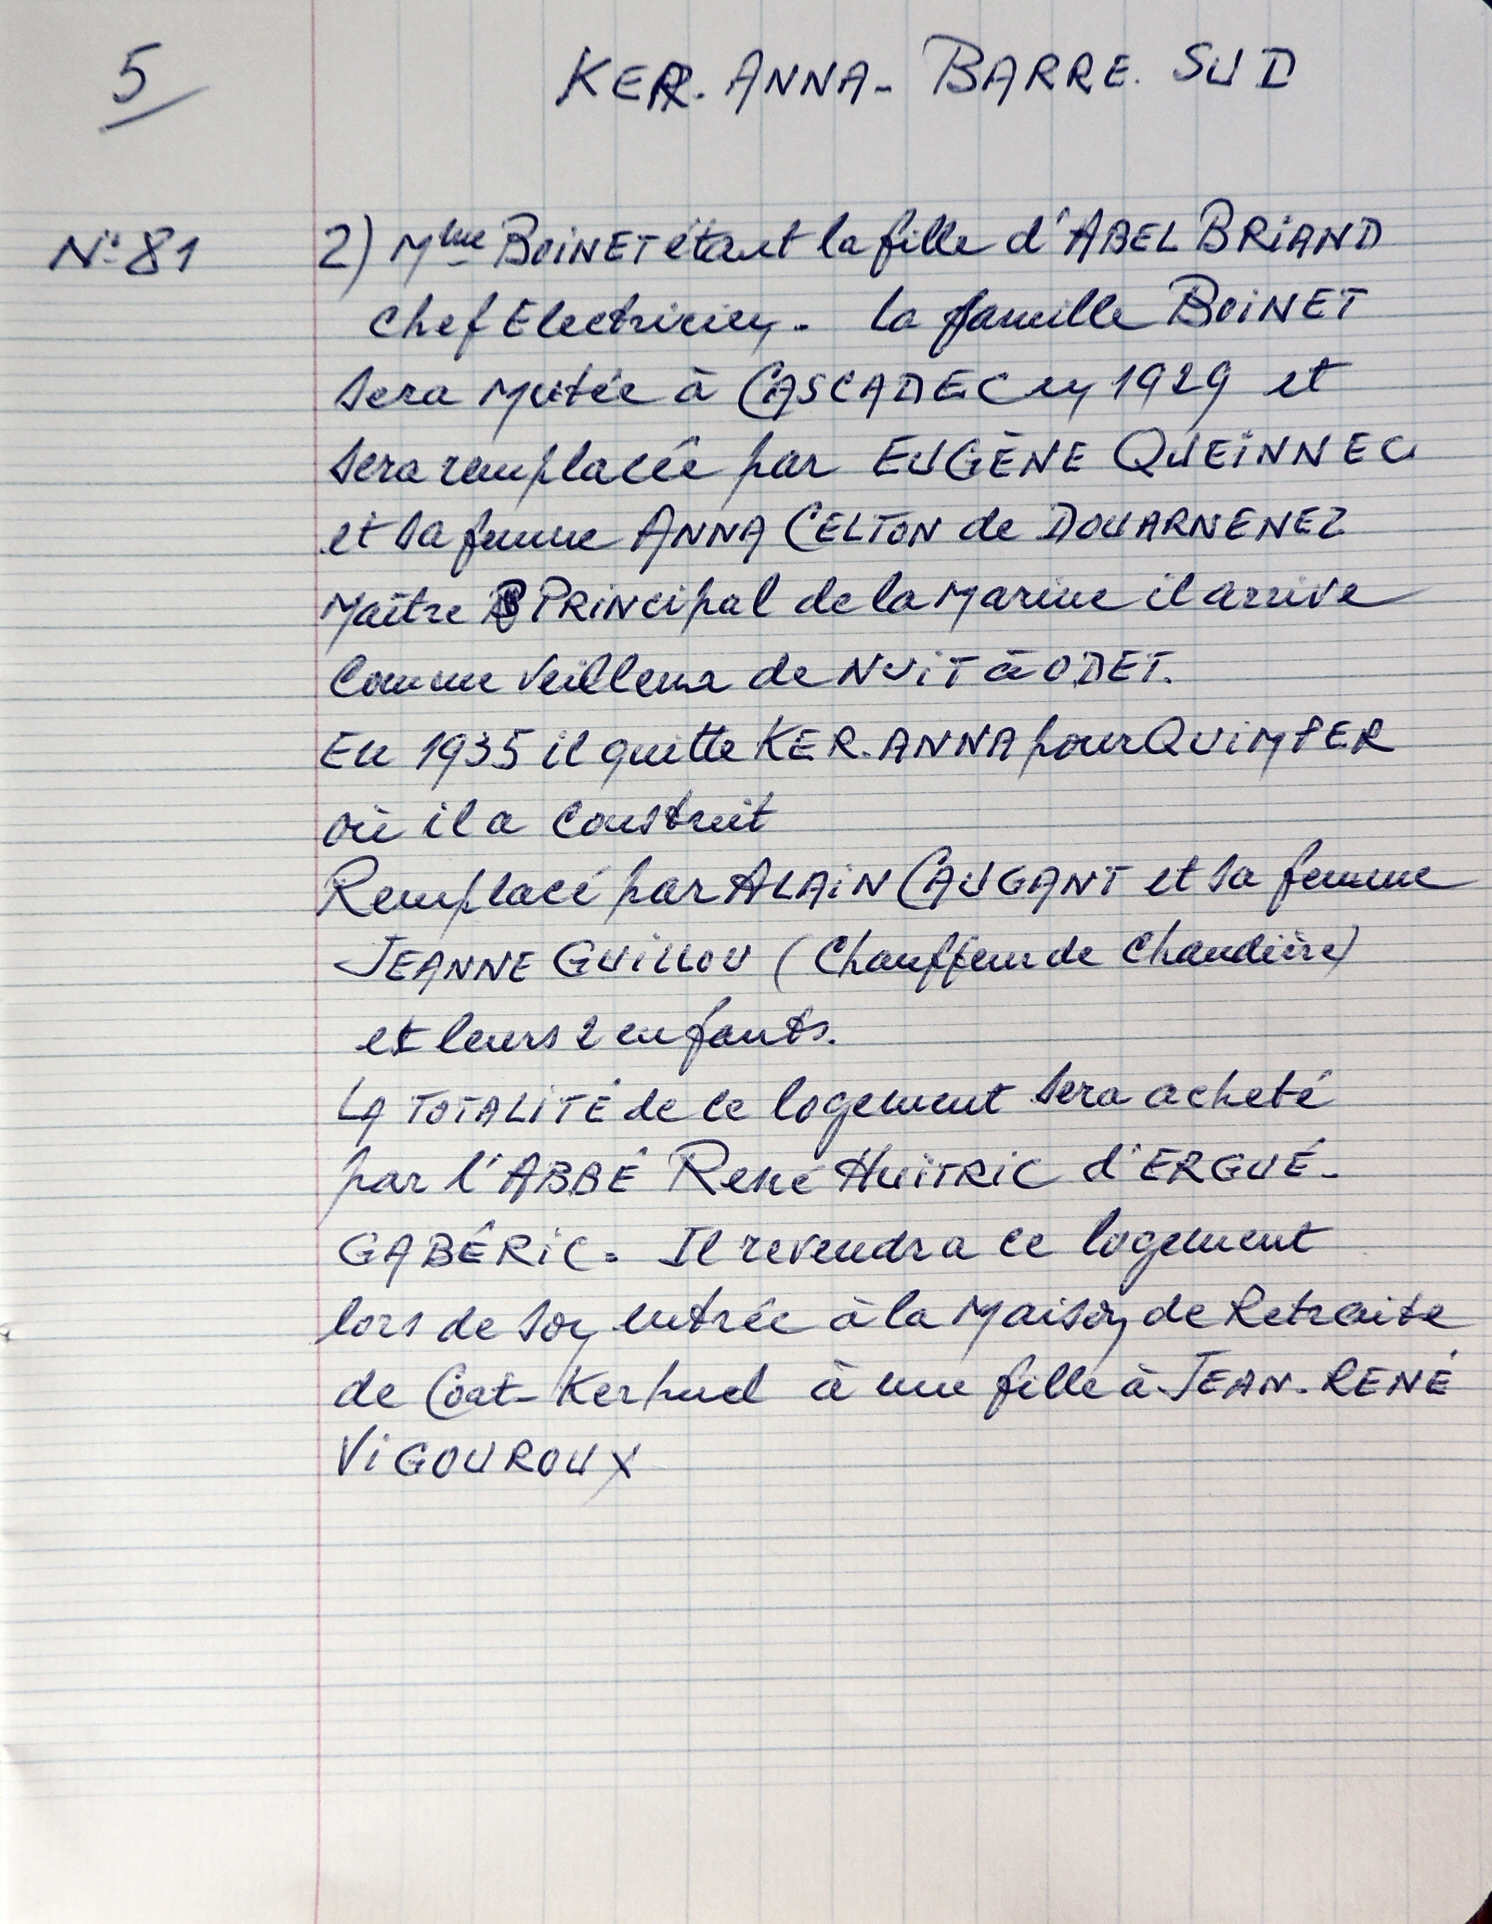 5
KER. ANNA - BARRE. SUD
N° 81
2) Mme BOINET étant la fille d'ABEL BRIAND
chef Electricien. La famille BOINET
sera mutée à CASCADEC en 1929 et
sera remplacée par EUGÈNE QUEÏNNEC
et sa femme ANNA CELTON de DOUARNENEZ
Maître PRINCIpal de la Marine il arrive
Comme Veilleur de NUIT à ODET.
En 1935 il quitte KER.ANNA pour QUIMPER
où il a construit
Remplacé par ALAIN CAUGANT et sa femme
JEANNE GUILLOU (Chauffeur de Chaudière)
et leurs 2 enfants.
LA TOTALITÉ de ce logement sera acheté
par l'ABBÉ René HUITRIC d'ERGUÉ-
GABÉRIC. Il revendra ce logement
lors de son entrée à la Maison de Retraite
de Coat-Kerhuel à une fille à JEAN-RENÉ
VIGOUROUX